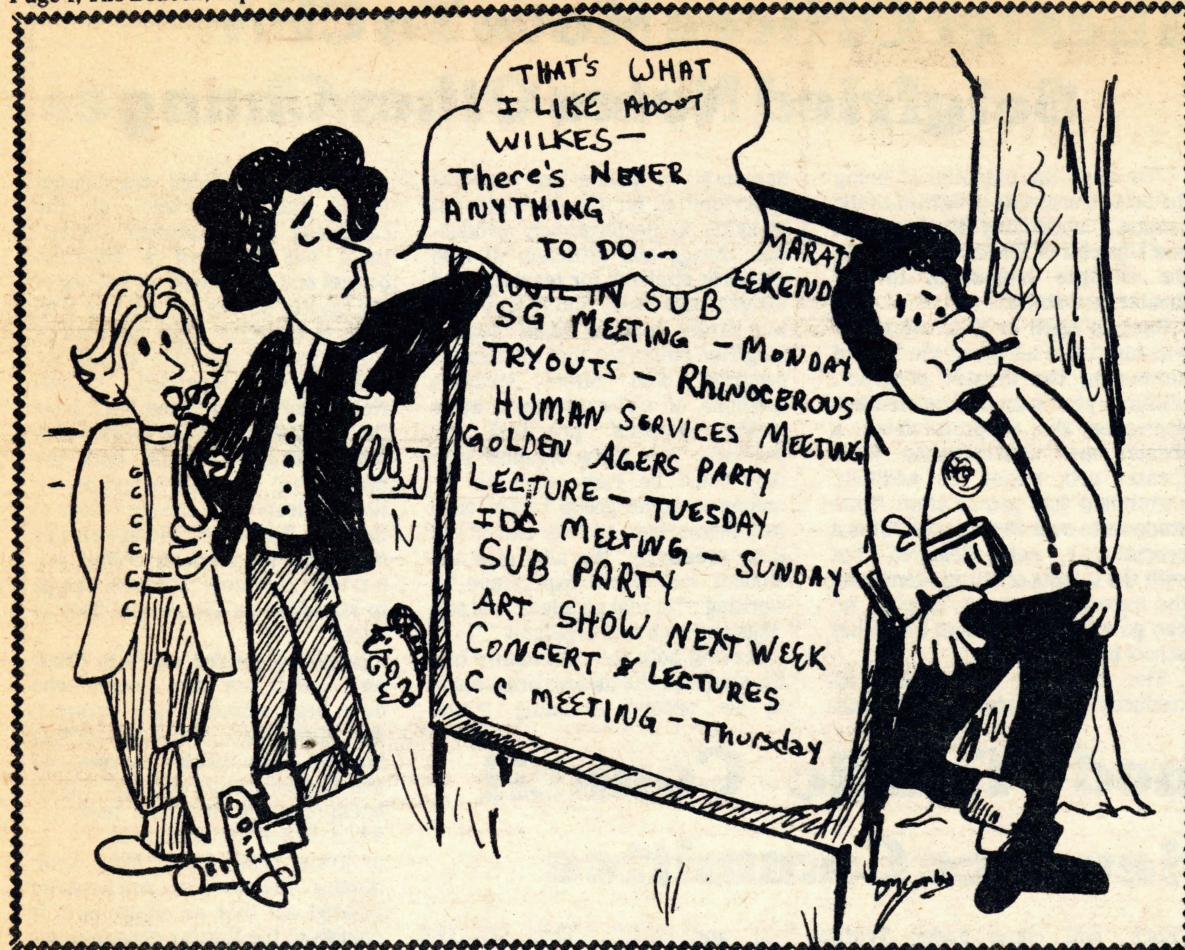 THAT'S WHAT
I LIKE ABOUT
WILKES—
There's NEVER
ANYTHING
TO DO...
MARAT
EEKEND
IN SUB
SG MEETING – MONDAY
TRYOUTS – RhINOCEROUS
HUMAN SERVICES MEETING
GOLDEN AGERS PARTY
LECTURE – TUESDAY
IDC MEETING – SUNDAY
SUB PARTY
ART SHOW NEXT WEEK
CONCERT & LECTURES
CC MEETING – Thursday